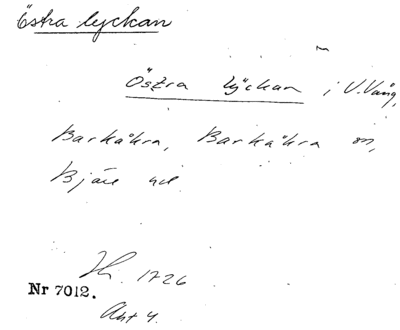 Östra lyckan
Östra lyckan i V. Vång,
Barkåkra, Barkåkra sn,
Bjäre hd.
1726
Nr 7012.
Akt 4.